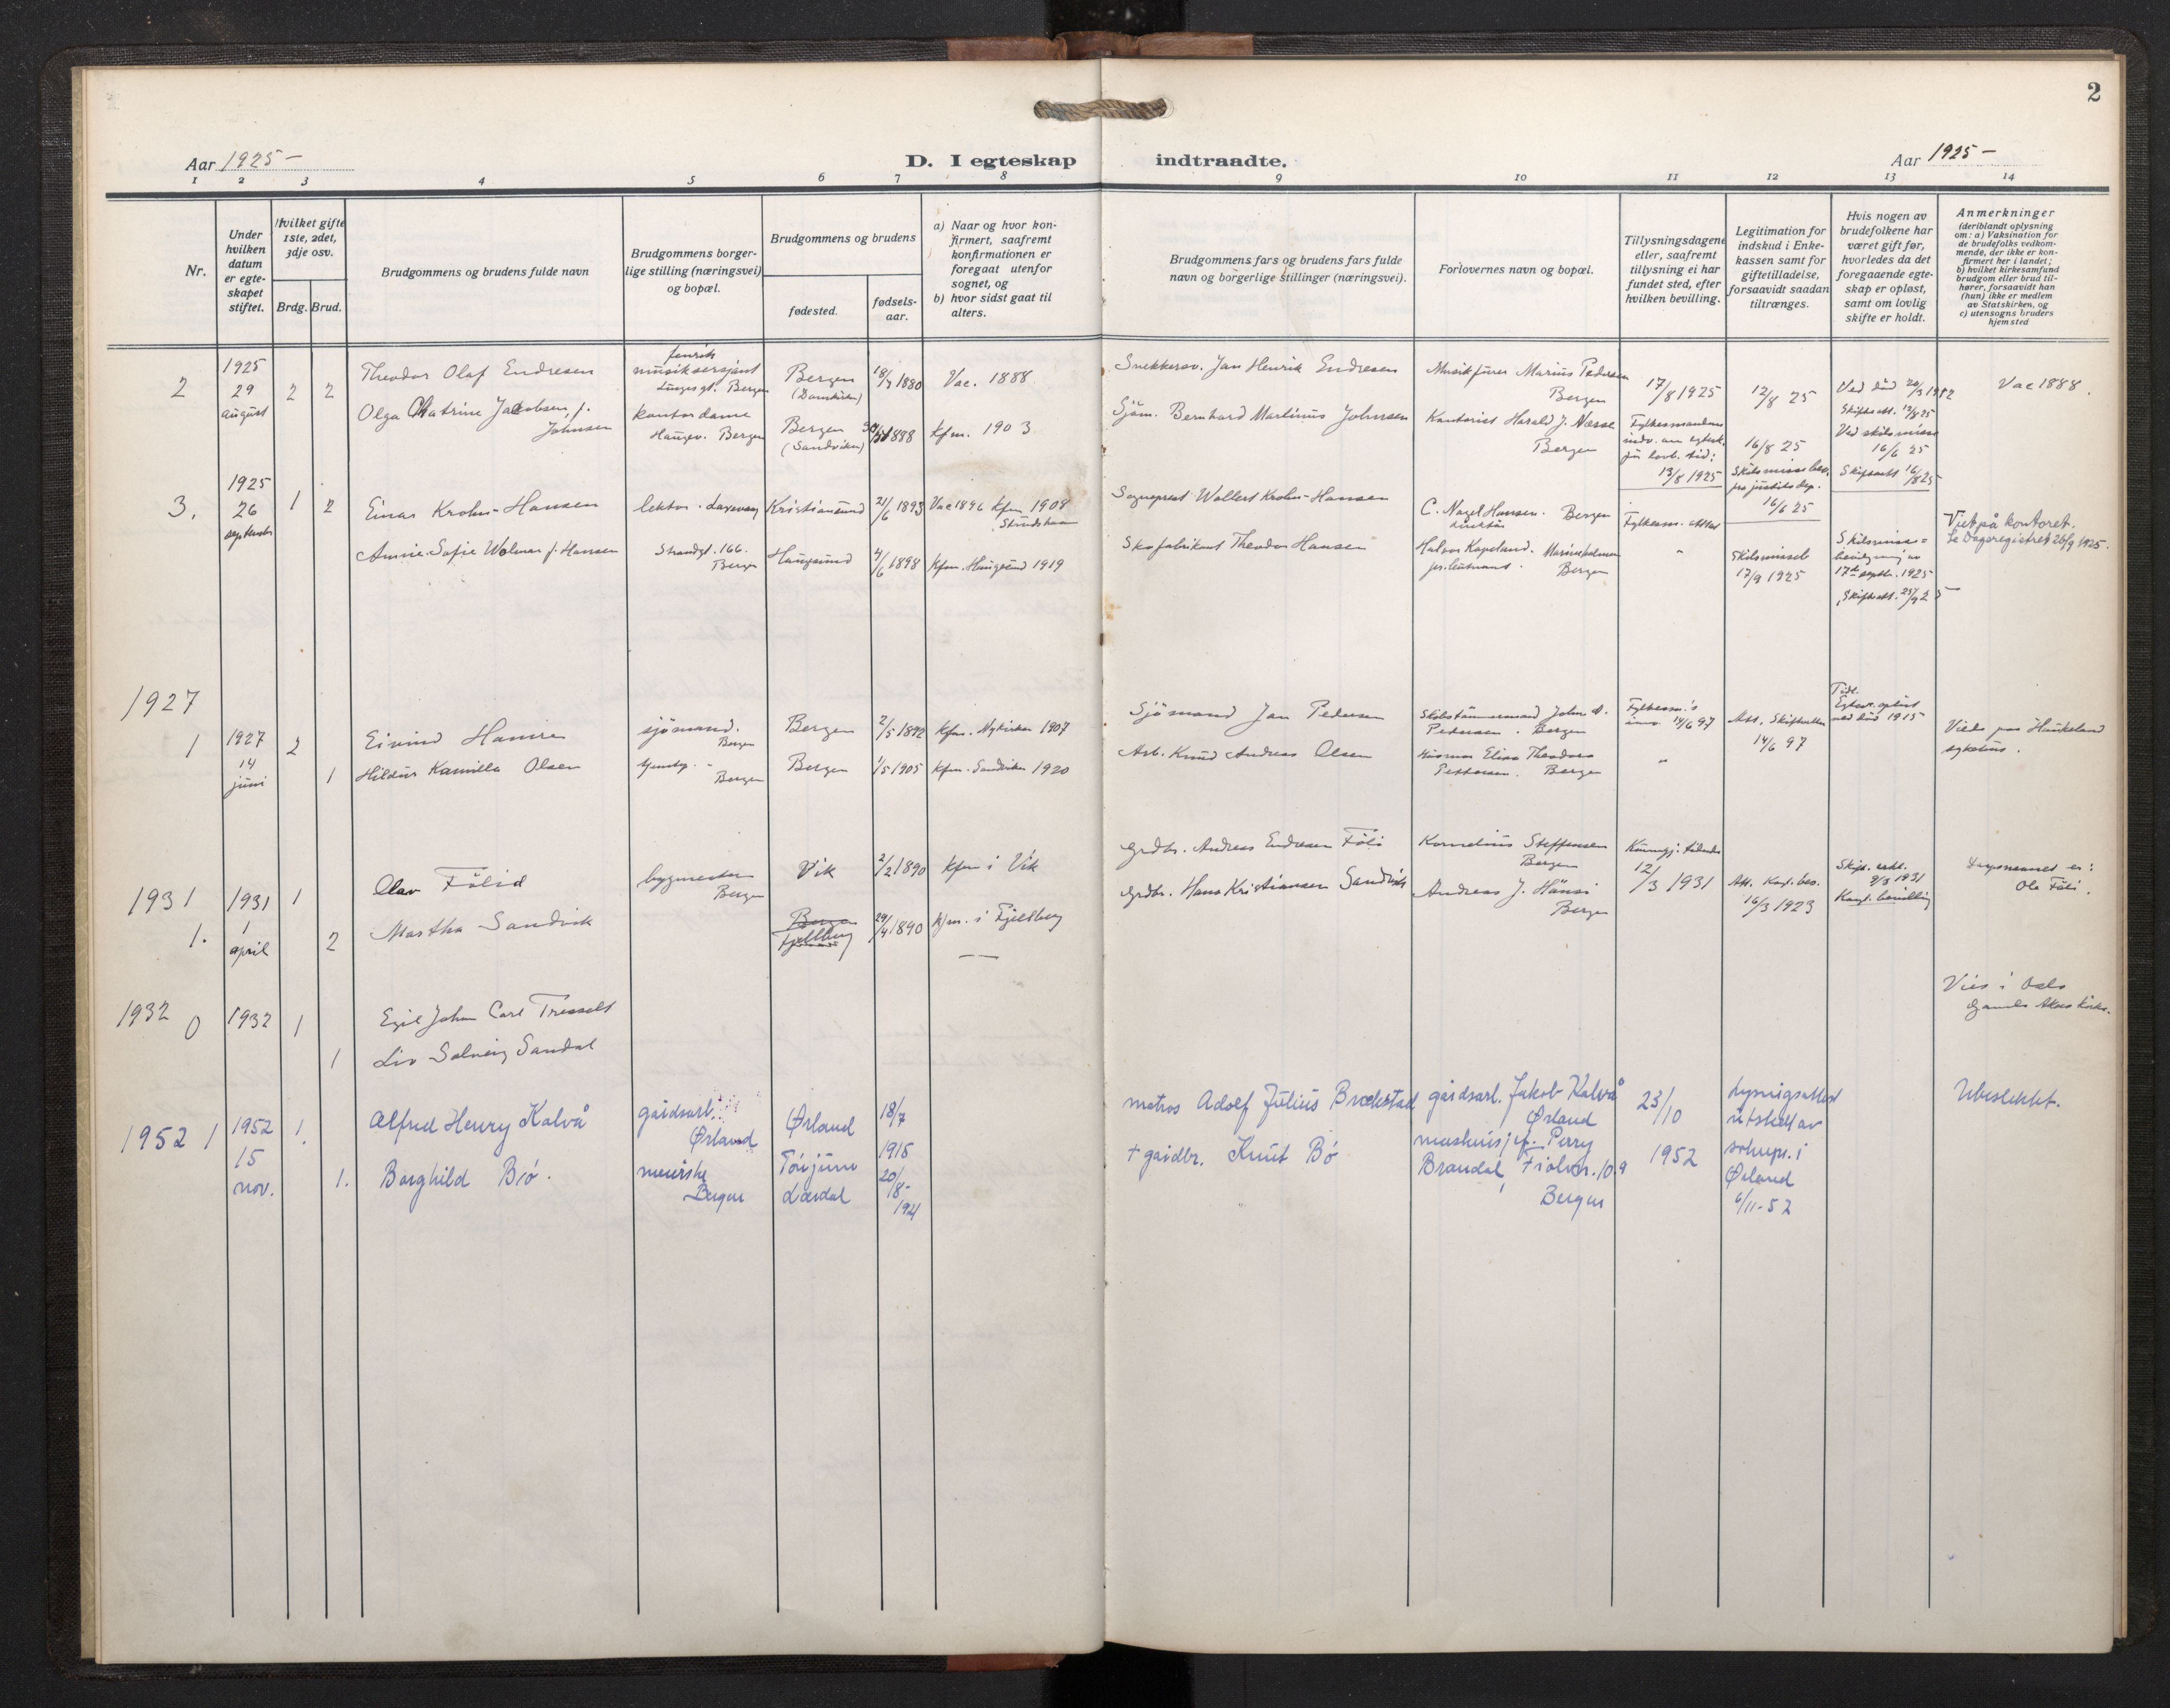 2
Aar 1925-
D. I egteskap
indtraadte.
Aar 1925-
1 2 3 4 5 6 7 8 9 10 11 12 13 14
Nr.
Under
hvilken
datum
er egte-
skapet
stiftet.
Hvilket gifte
1ste, 2det,
3dje osv.
Brdg. Brud.
Brudgommens og brudens fulde navn
Brudgommens borger-
lige stilling (næringsvei)
og bopæl.
Brudgommens og brudens
fødested.
fødsels-
aar.
a) Naar og hvor kon-
firmert, saafremt
konfirmationen er
foregaat utenfor
sognet, og
b) hvor sidst gaat til
alters.
Brudgommens fars og brudens fars fulde
navn og borgerlige stillinger (næringsvei).
Forlovernes navn og bopæl.
Tillysningsdagene
eller, saafremt
tillysning ei har
fundet sted, efter
hvilken bevilling.
Legitimation for
indskud i Enke-
kassen samt for
giftetilladelse,
forsaavidt saadan
tiltrænges.
Hvis nogen av
brudefolkene har
været gift før,
hvorledes da det
foregaaende egte-
skap er opløst,
samt om lovlig
skifte er holdt.
Anmerkninger
(deriblandt oplysning
om: a) Vaksination for
de brudefolks vedkom-
mende, der ikke er kon-
firmert her i landet;
b) hvilket kirkesamfund
brudgom eller brud til-
hører, forsaavidt han
(hun) ikke er medlem
av Statskirken, og
c) utensogns bruders
hjemsted
2
1925
29
august
2 2
Theodor Olaf Endresen
musiksersjant
Lungegt. Bergen
Bergen
(Domkirken)
18/7 1880
Vac. 1888
Snekkersv. Jan Henrik Endresen
Musikfurer Marius Pedersen
Bergen
17/8 1925
12/8 25
Vac 1888.
Olga Katrine Jacobsen, f.
Johnsen
kontordame
Haugev. Bergen
Bergen
(Sandviken)
1888
kfm. 1903
Sjöm. Bernhard Martinus Johnsen
Kontorist Harald J. Næsse
Bergen
13/8 1925
16/8 25
Skifteatt. 12/8 25
Ved skilsmisse
16/6 25
Skifteatt 16/8 25
16/6 25
3.
1925
26
september
1 2
Einar Krohn-Hansen
lektor. Laxevaag
Kristiansund
21/6 1893
Vac 1896 kfm 1908
Sogneprest Wollert Krohn-Hansen
C. Nagel Hansen. Bergen
Fylkesm. attest
Annie Sofie Wolmar f. Hansen
Strandgt. 166.
Bergen
Haugesund
4/6 1898
kfm. Haugesund 1919
Skofabrikant Theodor Hansen
Halvor Kapeland. Marineholmen
pr. leutnant. Bergen
"
17/9 1925
Skilsmisse-
bevilgning av
17de septbr. 1925
Skifteatt. 25/9 25
Viet på kontoret.
Se Dagsregistret 26/9 1925.
1927
1
1927
14
juni
2
Eivind Hamre
sjömand.
Bergen
Bergen
2/5 1892
kfm. Nykirken 1907
Sjömand Jan Pedersen
Skibstömmermand John A.
Pedersen. Bergen
Fylkesm.'s
Att. Skifteretten
14/6 97
ved död 1915
Viede paa Haukeland
sykehus.
1
Hildur Kamilla Olsen
Bergen
Bergen
1/5 1905
kfm. Sandviken 1920
Arb. Knud Andreas Olsen
Husmor Elisa Theodora
Pettersen. Bergen
"
1931
1.
1931
1
april
1
Olav Fölid
bygmester
Bergen
Vik
2/2 1890
kfm i Vik
Grdbr. Andreas Endresen Föli
Kornelius Steffensen
Bergen
12/3 1931
Att. Kgl. bev.
16/3 1923
Skift. erkl.
9/3 1931
Kongl. bevilling
Daapsnavnet er:
Ole Föli.
2
Martha Sandvik
Bergen
Fjellberg
29/4 1890
kfm. i Fjelberg
Grdbr. Hans Kristiansen Sandvik
Andreas J. Hänsi
Bergen
1932
0
1932
1
Egil Johan Carl Tresselt
1
Liv Solveig Sandal
Vies i Oslo
Gamle Akers kirke.
1952
1
1952
15
nov.
1.
Alfred Henry Kalvå
gårdsarb.
Ørland
Ørland
18/7
1915
matros Adolf Julius Brækstad
gårdsarb. Jakob Kalvå
Ørland
23/10
1952
Lysingsattest
utstedt av
soknepr. i
Ørland
6/11-52
Ubeslektet.
1.
Borghild Bö.
meierske
Bergen
Tönjum
Lærdal
20/8-
1921
+ gårdbr. Knut Bö
Perry
Brandal, Fiolvn. 109
Bergen